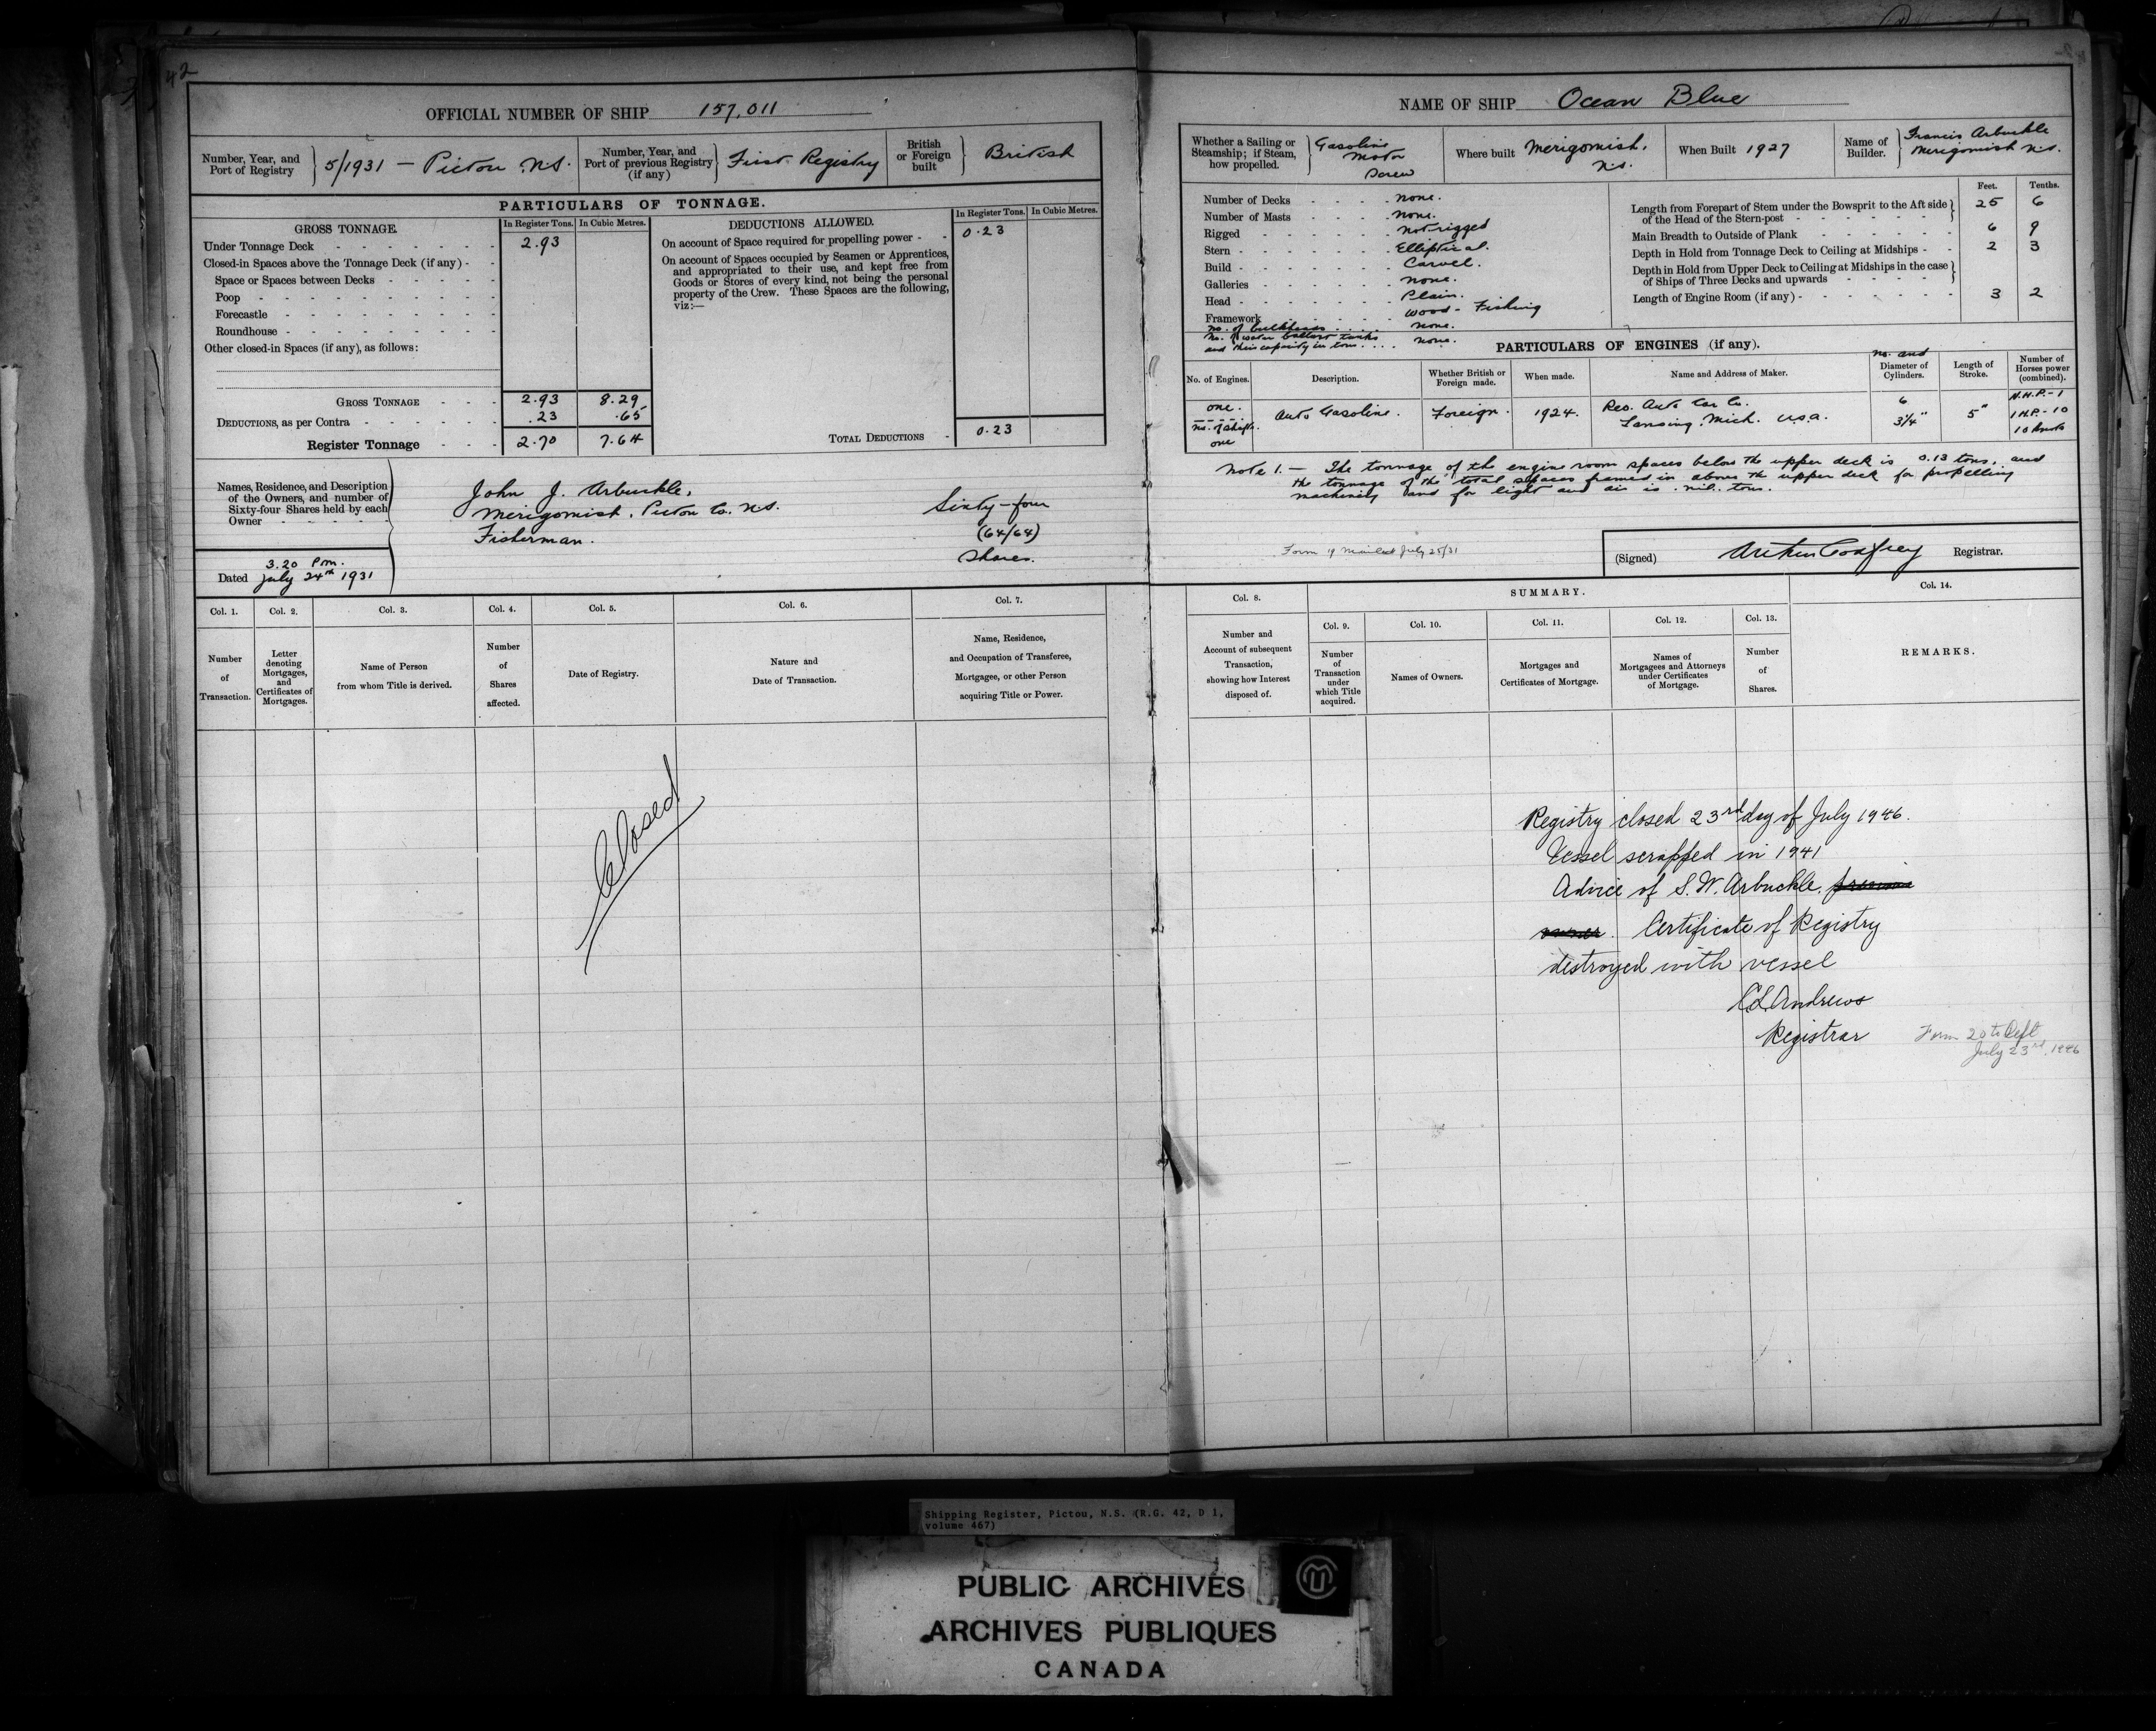 42
OFFICIAL NUMBER OF SHIP 157,011
Number, Year, and Port of Registry 5/1931 — Pictou N.S.
Number, Year, and Port of previous Registry (if any) First Registry
British or Foreign built British
PARTICULARS OF TONNAGE.
GROSS TONNAGE. In Register Tons. In Cubic Metres.
Under Tonnage Deck 2.93
Closed-in Spaces above the Tonnage Deck (if any)
Space or Spaces between Decks
Poop
Forecastle
Roundhouse
Other closed-in Spaces (if any), as follows:
GROSS TONNAGE 2.93 8.29
DEDUCTIONS, as per Contra .23 .65
Register Tonnage 2.70 7.64
DEDUCTIONS ALLOWED. In Register Tons. In Cubic Metres.
On account of Space required for propelling power 0.23
On account of Spaces occupied by Seamen or Apprentices,
and appropriated to their use, and kept free from
Goods or Stores of every kind, not being the personal
property of the Crew. These Spaces are the following,
viz:—
TOTAL DEDUCTIONS 0.23
Names, Residence, and Description
of the Owners, and number of
Sixty-four Shares held by each
Owner
John J. Arbuckle,
Merigomish, Pictou Co. N.S.
Fisherman.
Sixty-four
(64/64)
Shares.
3.20 Pm.
Dated July 24th 1931
Col. 1. Col. 2. Col. 3. Col. 4. Col. 5. Col. 6. Col. 7.
Number of Transaction.
Letter denoting Mortgages, and Certificates of Mortgages.
Name of Person from whom Title is derived.
Number of Shares affected.
Date of Registry.
Nature and Date of Transaction.
Name, Residence, and Occupation of Transferee, Mortgagee, or other Person acquiring Title or Power.
Closed
NAME OF SHIP Ocean Blue
Whether a Sailing or Steamship; if Steam, how propelled. Gasoline Motor Screw
Where built Merigomish, N.S.
When Built 1927
Name of Builder. Francis Arbuckle Merigomish N.S.
Number of Decks none.
Number of Masts none.
Rigged not rigged
Stern Elliptical.
Build Carvel.
Galleries none.
Head Plain.
Framework wood - Fishing
no. of bulkheads none.
no. of water ballast tanks
and their capacity in tons none.
Feet. Tenths.
Length from Forepart of Stem under the Bowsprit to the Aft side of the Head of the Stern-post 25 6
Main Breadth to Outside of Plank 6 9
Depth in Hold from Tonnage Deck to Ceiling at Midships 2 3
Depth in Hold from Upper Deck to Ceiling at Midships in the case of Ships of Three Decks and upwards
Length of Engine Room (if any) 3 2
PARTICULARS OF ENGINES (if any).
No. of Engines. Description. Whether British or Foreign made. When made. Name and Address of Maker. no. and Diameter of Cylinders. Length of Stroke. Number of Horses power (combined).
one. Auto Gasoline. Foreign. 1924. Reo. Auto Car Co. Lansing, Mich. U.S.A. 6 3¼" 5" N.H.P.-1
no. of shafts. I H.P.-10
one 10 knots
Note 1.— The tonnage of the engine room spaces below the upper deck is 0.13 tons, and
the tonnage of the total spaces framed in above the upper deck for propelling
machinery and for light and air is nil. tons.
Form 19 mailed July 25/31
(Signed) Arthur Godfrey Registrar.
Col. 8. SUMMARY. Col. 14.
Col. 9. Col. 10. Col. 11. Col. 12. Col. 13.
Number and Account of subsequent Transaction, showing how Interest disposed of.
Number of Transaction under which Title acquired.
Names of Owners.
Mortgages and Certificates of Mortgage.
Names of Mortgagees and Attorneys under Certificates of Mortgage.
Number of Shares.
REMARKS.
Registry closed 23rd day of July 1946.
Vessel scrapped in 1941
Advice of S. W. Arbuckle.
Certificate of Registry
destroyed with vessel
C L Andrews
Registrar
Form 20 to Dept
July 23rd, 1946
Shipping Register, Pictou, N.S. (R.G. 42, D 1,
volume 467)
PUBLIC ARCHIVES
ARCHIVES PUBLIQUES
CANADA